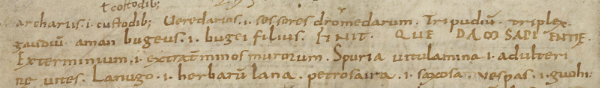 t costodib;
archaris .i. custodib; Veredarius .i. sessores dromedarum. Tripudiū triplex
gaudiū aman bugeus .i. bugei filius. FINIT. QUE DAM SAPI ENTIE
Exterminium .i. extra terminos murorum. Spuria vitulamina .i. adulteri
ne vites. Lanugo .i. herbarū lana. petrosa ira .i. saxosa. vespas .i.